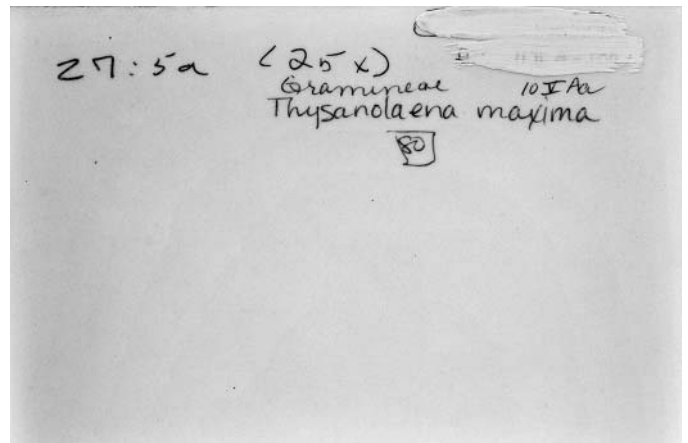 27:5a (25x)
Gramineae 10 V Aa
Thysanolaena maxima
80